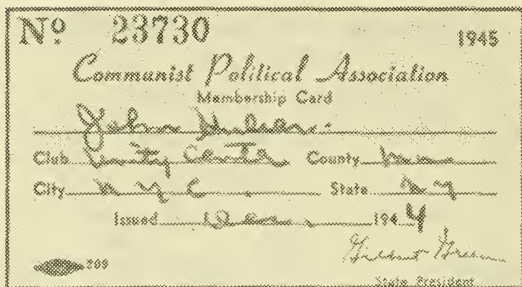 Nº 23730 1945
Communist Political Association
Membership Card
John
Club Unity Center County
City N Y C. State N Y
Issued Dec. 1944
Gilbert Green
209 State President